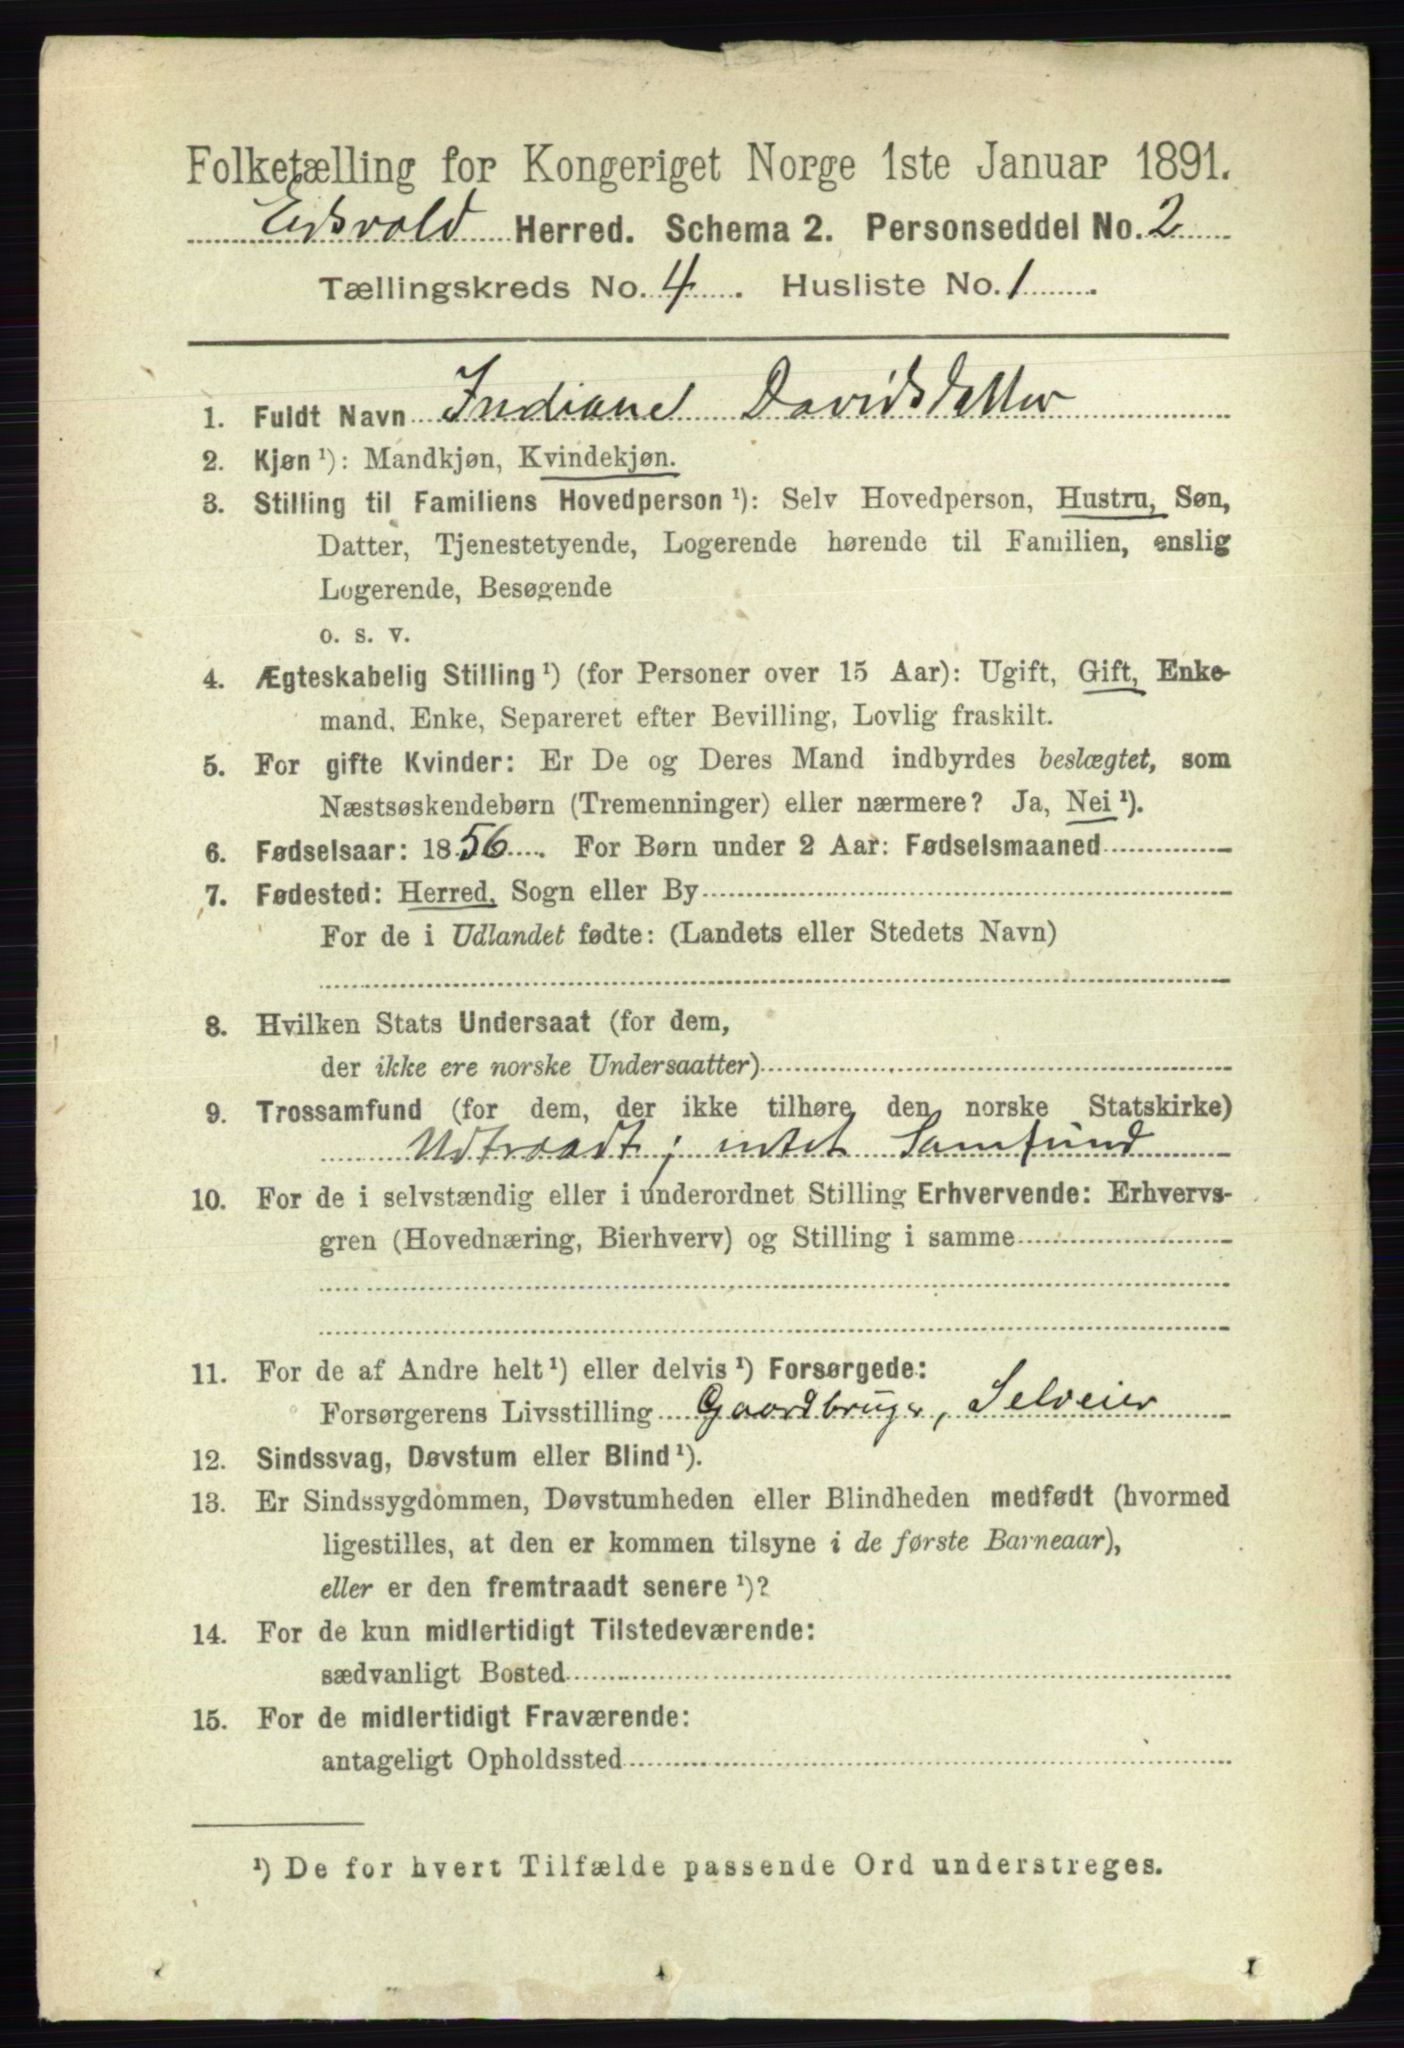 Folketælling for Kongeriget Norge 1ste Januar 1891.
Eidsvold Herred. Schema 2. Personseddel No. 2
Tællingskreds No. 4. Husliste No. 1.
1. Fuldt Navn Indiane Davidsdatter
2. Kjøn ¹): Mandkjøn, Kvindekjøn.
3. Stilling til Familiens Hovedperson ¹): Selv Hovedperson, Hustru, Søn,
Datter, Tjenestetyende, Logerende hørende til Familien, enslig
Logerende, Besøgende
o. s. v.
4. Ægteskabelig Stilling ¹) (for Personer over 15 Aar): Ugift, Gift, Enke-
mand, Enke, Separeret efter Bevilling, Lovlig fraskilt.
5. For gifte Kvinder: Er De og Deres Mand indbyrdes beslægtet, som
Næstsøskendebørn (Tremenninger) eller nærmere? Ja, Nei ¹).
6. Fødselsaar: 1856. For Børn under 2 Aar: Fødselsmaaned
7. Fødested: Herred, Sogn eller By
For de i Udlandet fødte: (Landets eller Stedets Navn)
8. Hvilken Stats Undersaat (for dem,
der ikke ere norske Undersaatter)
9. Trossamfund (for dem, der ikke tilhøre den norske Statskirke)
Udtraadt; intet Samfund
10. For de i selvstændig eller i underordnet Stilling Erhvervende: Erhvervs-
gren (Hovednæring, Bierhverv) og Stilling i samme
11. For de af Andre helt ¹) eller delvis ¹) Forsørgede:
Forsørgerens Livsstilling Gaardbruger, Selveier
12. Sindssvag, Døvstum eller Blind ¹).
13. Er Sindssygdommen, Døvstumheden eller Blindheden medfødt (hvormed
ligestilles, at den er kommen tilsyne i de første Barneaar),
eller er den fremtraadt senere ¹)?
14. For de kun midlertidigt Tilstedeværende:
sædvanligt Bosted
15. For de midlertidigt Fraværende:
antageligt Opholdssted
¹) De for hvert Tilfælde passende Ord understreges.